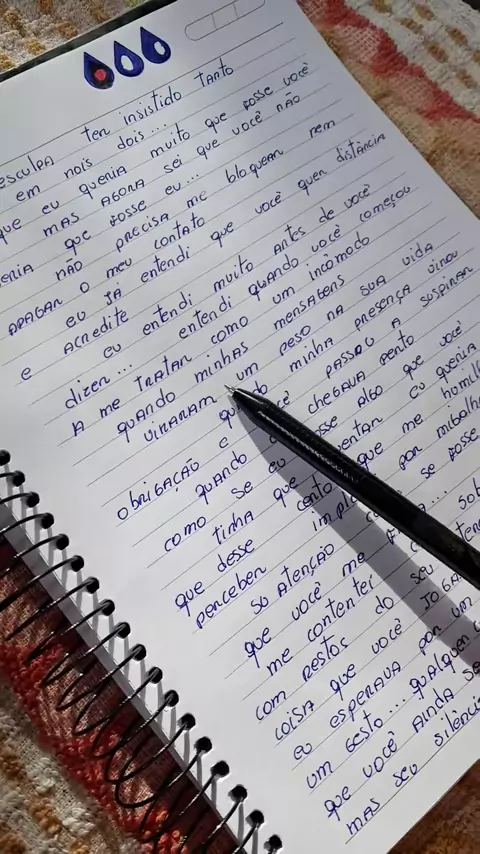 esculpa ter insistido tanto
em nois dois...
que eu queria muito que fosse você
mas agora sei que você não
eria que fosse eu...
não precisa me bloquear nem
apagar o meu contato
eu já entendi que você quer distância
e acredite
eu entendi muito antes de você
dizer... entendi quando você começou
a me tratar como um incômodo
quando minhas mensagens
viraram um peso na sua vida
obrigação e minha presença virou
quando passou a suspirar
como se eu chegava perto
tinha que algo que você
que desse eu queria
perceber que me
so atenção por
que você me se fosse
me contentei
com restos do seu
coisa que você
eu esperava por um
um gesto... qualquer
que você ainda
mas seu silênci